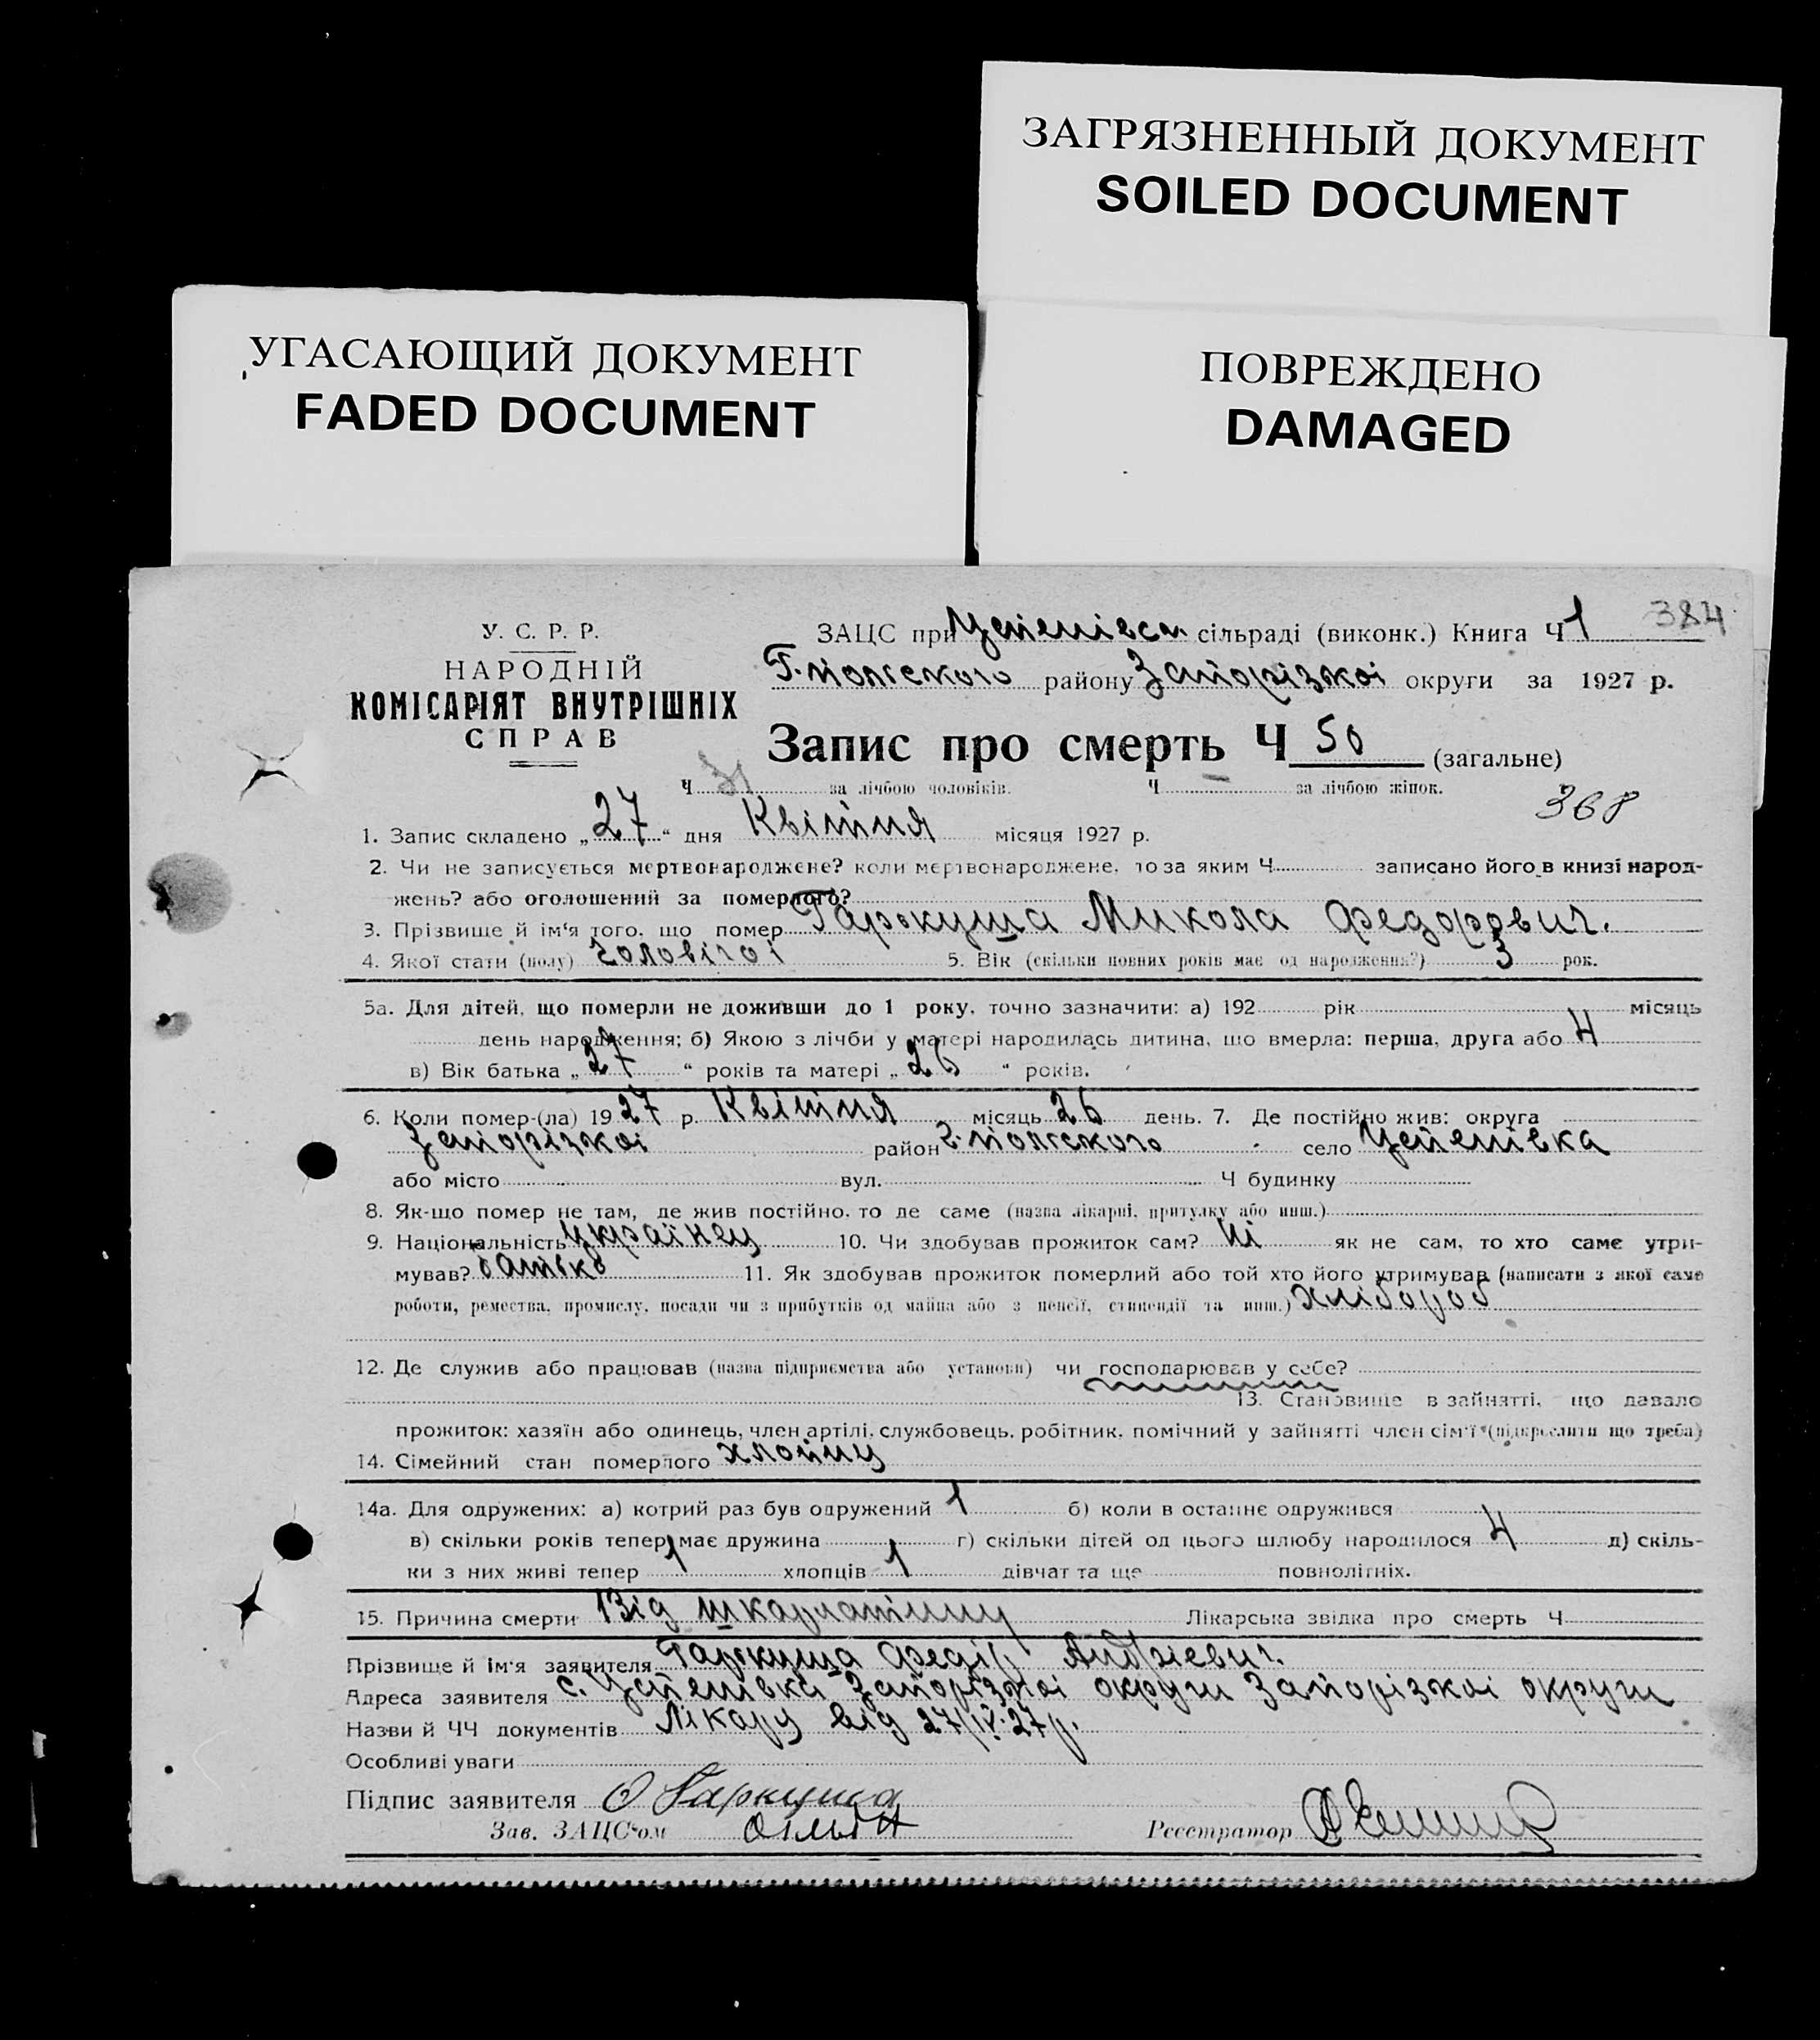 ЗАГРЯЗНЕННЫЙ ДОКУМЕНТ
SOILED DOCUMENT
УГАСАЮЩИЙ ДОКУМЕНТ
FADED DOCUMENT
ПОВРЕЖДЕНО
DAMAGED
384
У. С. Р. Р.
НАРОДНІЙ
КОМІСАРІЯТ ВНУТРІШНІХ
СПРАВ
ЗАЦС при Успенівськ сільраді (виконк.) Книга Ч 1
Г.-польского району Запорізькоі округи за 1927 р.
Запис про смерть Ч 50 (загальне)
Ч 31 за лічбою чоловіків. Ч — за лічбою жінок.
368
1. Запис складено „27“ дня Квітня місяця 1927 р.
2. Чи не записується мертвонароджене? коли мертвонароджене, то за яким Ч записано його в книзі народ-
жень? або оголошений за померлого?
3. Прізвище й ім'я того, що помер Гарькуша Микола Федорович.
4. Якої стати (полу) Чоловічоі 5. Вік (скільки повних років має од народження?) 3 рок.
5а. Для дітей, що померли не доживши до 1 року, точно зазначити: а) 192 рік місяць
день народження; б) Якою з лічби у матері народилась дитина, що вмерла: перша, друга або 4
в) Вік батька „27“ років та матері „26“ років.
6. Коли помер-(ла) 1927 р. Квітня місяць 26 день. 7. Де постійно жив: округа
Запорізькоі район Г.-польского село Успенівка
або місто вул. Ч будинку
8. Як-що помер не там, де жив постійно, то де саме (назва лікарні, притулку або инш.)
9. Національність українец 10. Чи здобував прожиток сам? Ні як не сам, то хто саме утри-
мував? батько 11. Як здобував прожиток померлий або той хто його утримував (написати з якої саме
роботи, ремества, промислу, посади чи з прибутків од майна або з пенсії, стипендії та инш.) хлібороб
12. Де служив або працював (назва підприємства або установи) чи господарював у себе?
13. Становище в зайнятті, що давало
прожиток: хазяїн або одинець, член артілі, службовець, робітник, помічний у зайнятті член сім'ї (підкреслити що треба)
14. Сімейний стан померлого хлопиц
14а. Для одружених: а) котрий раз був одружений 1 б) коли в останнє одружився
в) скільки років тепер має дружина г) скільки дітей од цього шлюбу народилося 4 д) скіль-
ки з них живі тепер 1 хлопців 1 дівчат та ще повнолітніх.
15. Причина смерти Від шкарлатіни Лікарська звідка про смерть Ч
Прізвище й ім'я заявителя Гарькуша Федір Андріевич.
Адреса заявителя с. Успенівка Запорізькоі округи Запорізькоі округи
Назви й ЧЧ документів Лікару від 27/IV-27р.
Особливі уваги
Підпис заявителя Ф Гаркуша
Зав. ЗАЦС'ом
Реєстратор